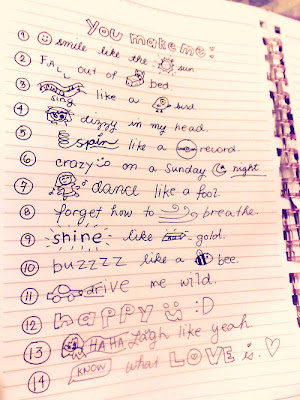 you make me:
1 smile like the sun
2 FALL out of bed.
3 sing like a bird.
4 dizzy in my head.
5 spin like a record.
6 crazy on a Sunday night
7 dance like a fool
8 forget how to breathe.
9 shine like gold.
10 buzzzz like a bee.
11 drive me wild.
12 happy :D
13 HA HA Laugh like yeah
14 KNOW what LOVE is. ♡